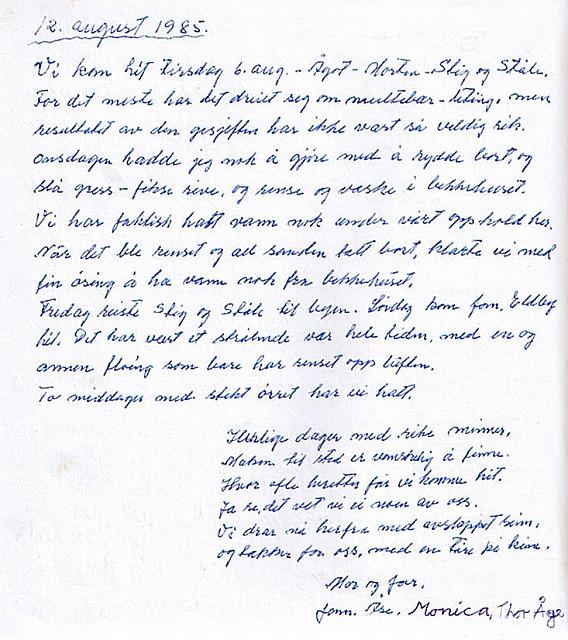 12. august 1985.
Vi kom hit tirsdag 6. aug. - Ågot - Morten - Stig og Ståle.
For det meste har det dreiet seg om multebær-leting, men
resultatet av den geskjeften har ikke vært så veldig rik.
Onsdagen hadde jeg nok å gjøre med å rydde bort, og
slå gress - fikse rive, og rense og vaske i bekkehuset.
Vi har faktisk hatt vann nok under vårt opphold her.
Når det ble renset og all sanden tatt bort, klarte vi med
fin ösing å ha vann nok fra bekkehuset.
Fredag reiste Stig og Ståle til byen. Lördag kom fam. Eldby
hit. Det har vært et strålende vær hele tiden, med en og
annen flöing som bare har renset opp luften.
To middager med stekt örret har vi hatt.
Herlige dager med rike minner,
Maken til sted er vanskelig å finne.
Hvor ofte heretter får vi komme hit.
Ja se, det vet vi ei noen av oss.
Vi drar nå herfra med avslappet sinn,
og takker for oss, med en tåre på kinn.
Mor og far.
fam. Åse, Monica, Thor Åge